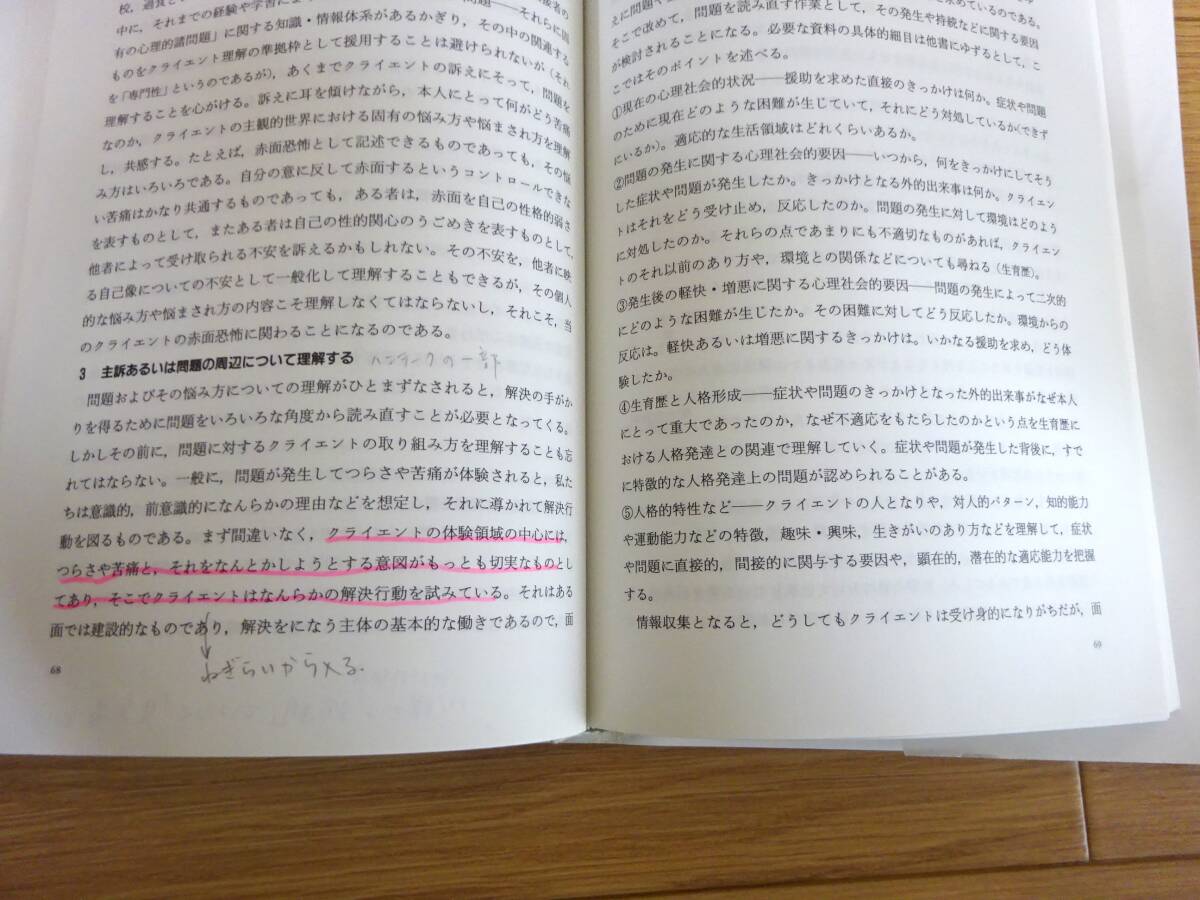 校，過食と
中に，それまでの経験や学習によ
有の心理的諸問題」に関する知識・情報体系があるかぎり，その中の関連する
ものをクライエント理解の準拠枠として援用することは避けられないが（それ
を「専門性」というのであるが），あくまでクライエントの訴えにそって，問題を
理解することを心がける。訴えに耳を傾けながら，本人にとって何がどう苦痛
なのか，クライエントの主観的世界における固有の悩み方や悩まされ方を理解
し，共感する。たとえば，赤面恐怖として記述できるものであっても，その悩
み方はいろいろである。自分の意に反して赤面するというコントロールできな
い苦痛はかなり共通するものであっても，ある者は，赤面を自己の性格的弱さ
を表すものとして，またある者は自己の性的関心のうごめきを表すものとして，
他者によって受け取られる不安を訴えるかもしれない。その不安を，他者に映
る自己像についての不安として一般化して理解することもできるが，その個人
的な悩み方や悩まされ方の内容こそ理解しなくてはならないし，それこそ，当
のクライエントの赤面恐怖に関わることになるのである。
3　主訴あるいは問題の周辺について理解する
の一部
問題およびその悩み方についての理解がひとまずなされると，解決の手がか
りを得るために問題をいろいろな角度から読み直すことが必要となってくる。
しかしその前に，問題に対するクライエントの取り組み方を理解することも忘
れてはならない。一般に，問題が発生してつらさや苦痛が体験されると，私た
ちは意識的，前意識的になんらかの理由などを想定し，それに導かれて解決行
動を図るものである。まず間違いなく，クライエントの体験領域の中心には，
つらさや苦痛と，それをなんとかしようとする意図がもっとも切実なものとし
てあり，そこでクライエントはなんらかの解決行動を試みている。それはある
面では建設的なものであり，解決をになう主体の基本的な働きであるので，面
ねぎらいから入る。
68
えに問題へ
求めているのである。
そこで改めて，問題を読み直す作業として，その発生や持続などに関する要因
が検討されることになる。必要な資料の具体的細目は他書にゆずるとして，こ
こではそのポイントを述べる。
①現在の心理社会的状況——援助を求めた直接のきっかけは何か。症状や問題
のために現在どのような困難が生じていて，それにどう対処しているか(できず
にいるか)。適応的な生活領域はどれくらいあるか。
②問題の発生に関する心理社会的要因——いつから，何をきっかけにしてそう
した症状や問題が発生したか。きっかけとなる外的出来事は何か。クライエン
トはそれをどう受け止め，反応したのか。問題の発生に対して環境はどのよう
に対処したのか。それらの点であまりにも不適切なものがあれば，クライエン
トのそれ以前のあり方や，環境との関係などについても尋ねる（生育歴）。
③発生後の軽快・増悪に関する心理社会的要因——問題の発生によって二次的
にどのような困難が生じたか。その困難に対してどう反応したか。環境からの
反応は。軽快あるいは増悪に関するきっかけは。いかなる援助を求め，どう体
験したか。
④生育歴と人格形成——症状や問題のきっかけとなった外的出来事がなぜ本人
にとって重大であったのか，なぜ不適応をもたらしたのかという点を生育歴に
おける人格発達との関連で理解していく。症状や問題が発生した背後に，すで
に特徴的な人格発達上の問題が認められることがある。
⑤人格的特性など——クライエントの人となりや，対人的パターン，知的能力
や運動能力などの特徴，趣味・興味，生きがいのあり方などを理解して，症状
や問題に直接的，間接的に関与する要因や，顕在的，潜在的な適応能力を把握
する。
情報収集となると，どうしてもクライエントは受け身的になりがちだが，面
69